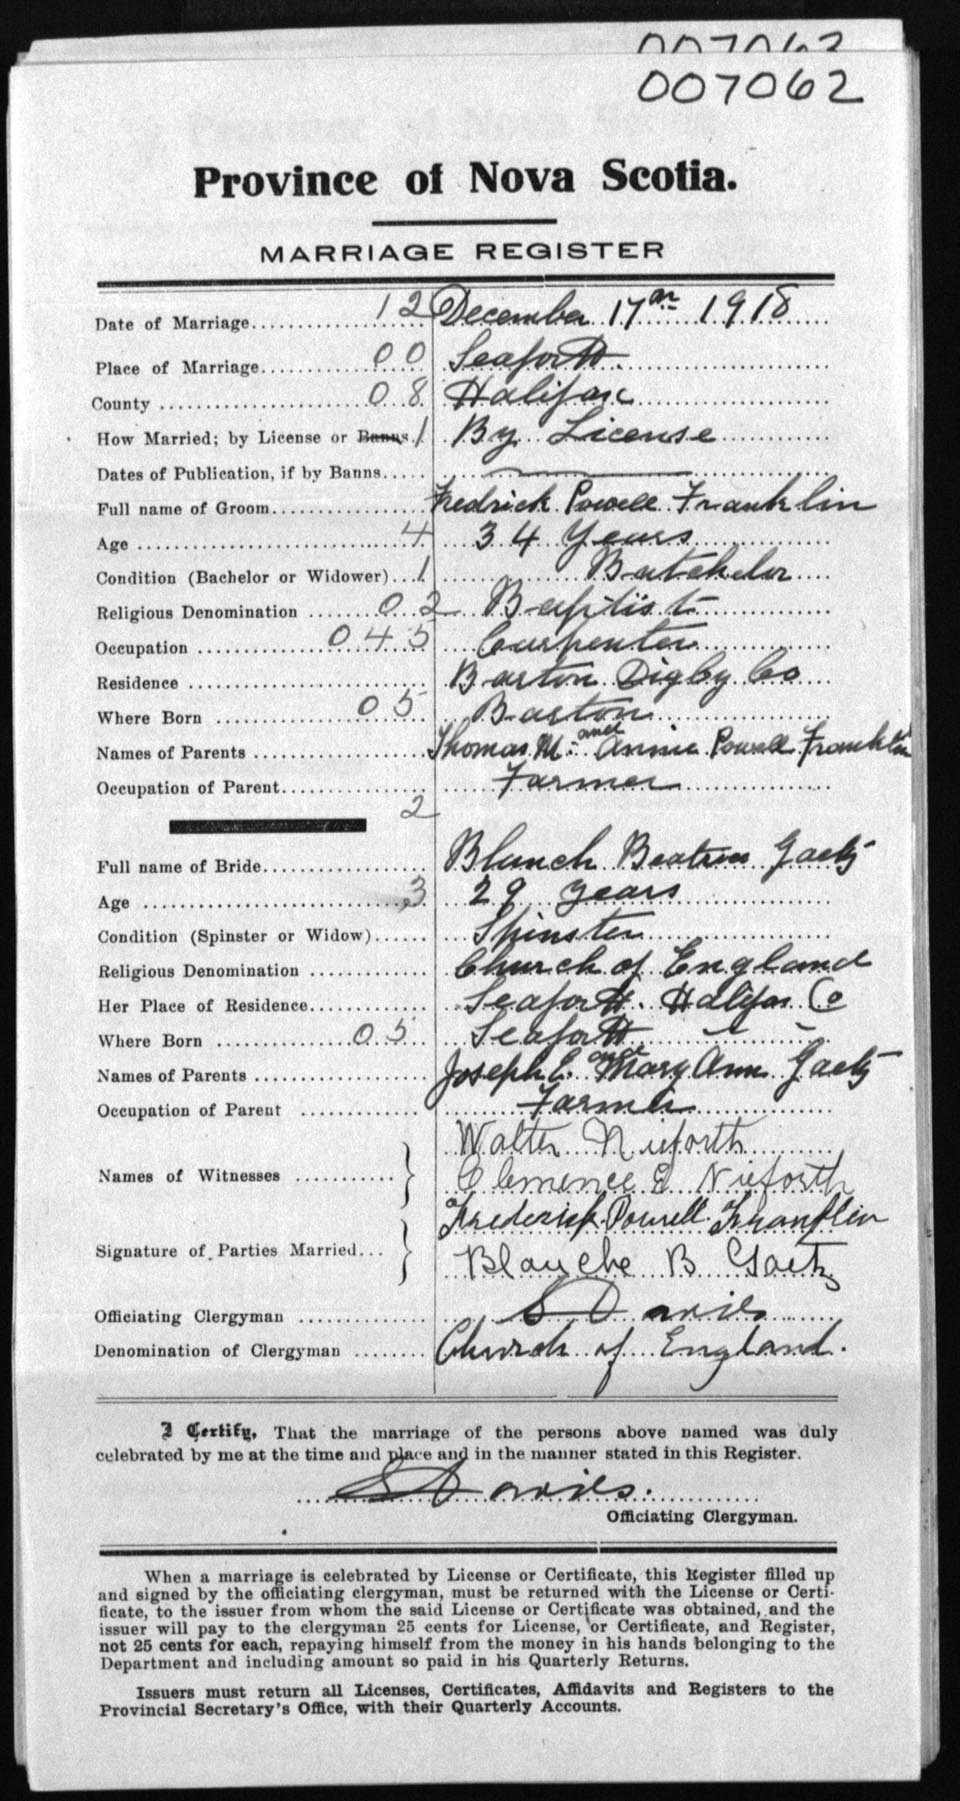 007063
007062
Province of Nova Scotia.
MARRIAGE REGISTER
Date of Marriage 12 December 17th 1918
Place of Marriage 00 Seaforth.
County 08 Halifax
How Married; by License or Banns 1 By License
Dates of Publication, if by Banns
Full name of Groom Fredrick Powell Franklin
Age 4 34 Years
Condition (Bachelor or Widower) 1 Batchelor
Religious Denomination 02 Baptist
Occupation 045 Carpenter
Residence Barton Digby Co
Where Born 05 Barton
Names of Parents Thomas M. and Annie Powell Franklin
Occupation of Parent Farmer
2
Full name of Bride Blanch Beatrice Gaetz
Age 3 29 years
Condition (Spinster or Widow) Spinster
Religious Denomination Church of England
Her Place of Residence Seaforth. Halifax Co
Where Born 05 Seaforth " "
Names of Parents Joseph E. and Mary Ann Gaetz
Occupation of Parent Farmer
Walter Nieforth
Names of Witnesses
Clemence E Nieforth
Frederick Powell Franklin
Signature of Parties Married
Blanche B Gaetz
Officiating Clergyman S D avies
Denomination of Clergyman Church of England.
I Certify, That the marriage of the persons above named was duly
celebrated by me at the time and place and in the manner stated in this Register.
S Davies.
Officiating Clergyman.
When a marriage is celebrated by License or Certificate, this Register filled up
and signed by the officiating clergyman, must be returned with the License or Certi-
ficate, to the issuer from whom the said License or Certificate was obtained, and the
issuer will pay to the clergyman 25 cents for License, or Certificate, and Register,
not 25 cents for each, repaying himself from the money in his hands belonging to the
Department and including amount so paid in his Quarterly Returns.
Issuers must return all Licenses, Certificates, Affidavits and Registers to the
Provincial Secretary's Office, with their Quarterly Accounts.